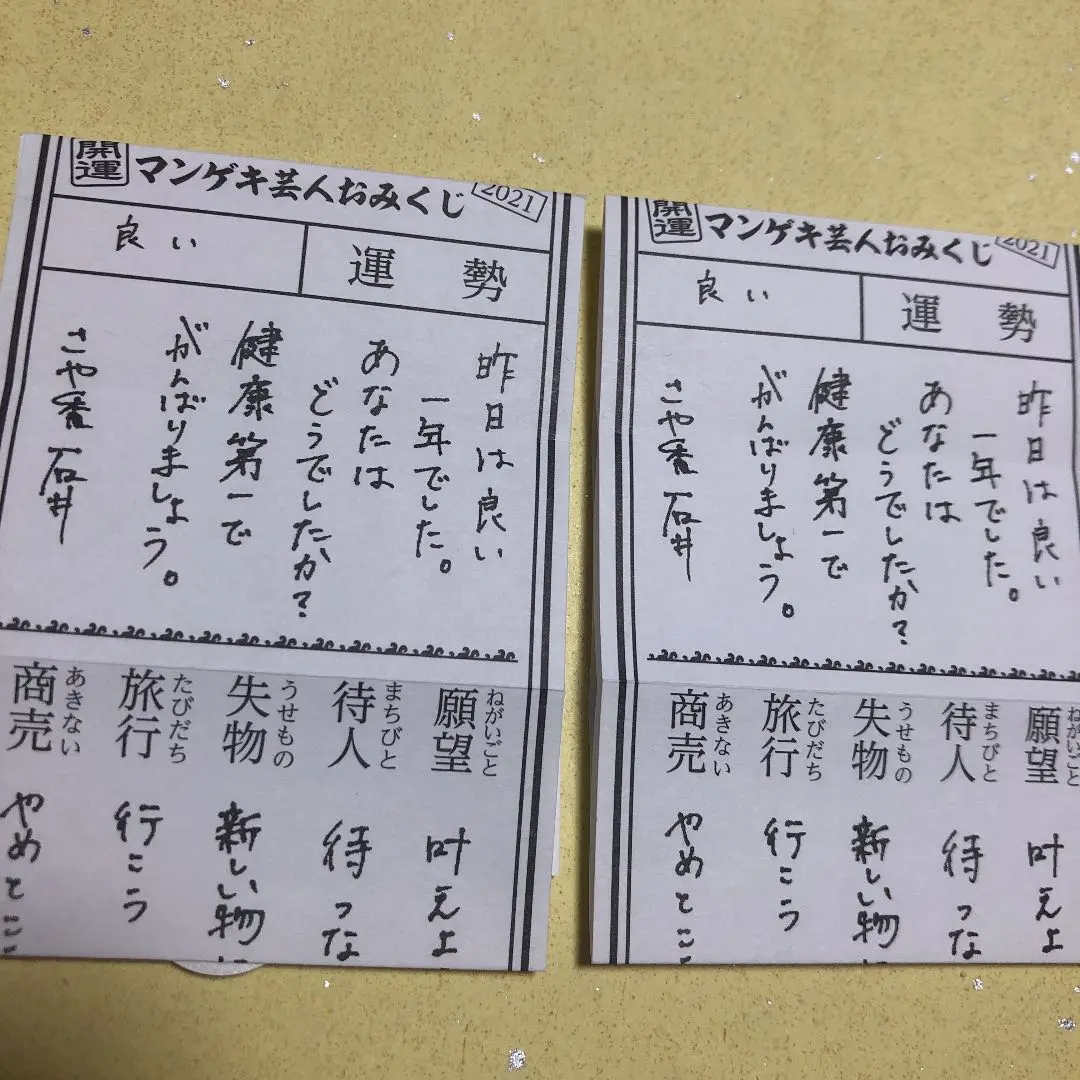 開運
マンゲキ芸人おみくじ
2021
運勢
良い
昨日は良い
一年でした。
あなたは
どうでしたか?
健康第一で
がんばりましょう。
さや香 石井
願望 ねがいごと
叶えよ
待人 まちびと
待つな
失物 うせもの
新しい物
旅行 たびだち
行こう
商売 あきない
やめとこ
開運
マンゲキ芸人おみくじ
2021
運勢
良い
昨日は良い
一年でした。
あなたは
どうでしたか?
健康第一で
がんばりましょう。
さや香 石井
願望 ねがいごと
叶えよ
待人 まちびと
待つな
失物 うせもの
新しい物
旅行 たびだち
行こう
商売 あきない
やめとこ